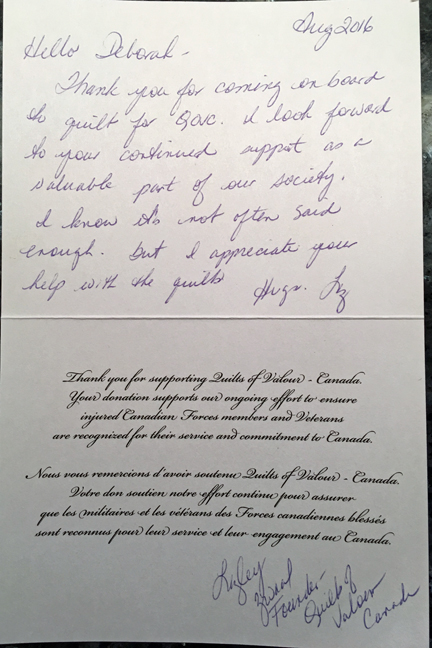 Aug 2016
Hello Deborah -
Thank you for coming on board
to quilt for QOVC. I look forward
to your continued support as a
valuable part of our society.
I know it's not often said
enough. but I appreciate your
help with the quilts
Hugs. Lez
Thank you for supporting Quilts of Valour - Canada.
Your donation supports our ongoing effort to ensure
injured Canadian Forces members and Veterans
are recognized for their service and commitment to Canada.
Nous vous remercions d'avoir soutenu Quilts of Valour - Canada.
Votre don soutien notre effort continu pour assurer
que les militaires et les vétérans des Forces canadiennes blessés
sont reconnus pour leur service et leur engagement au Canada.
Lezley
Founder -
Quilts of
Valour
Canada